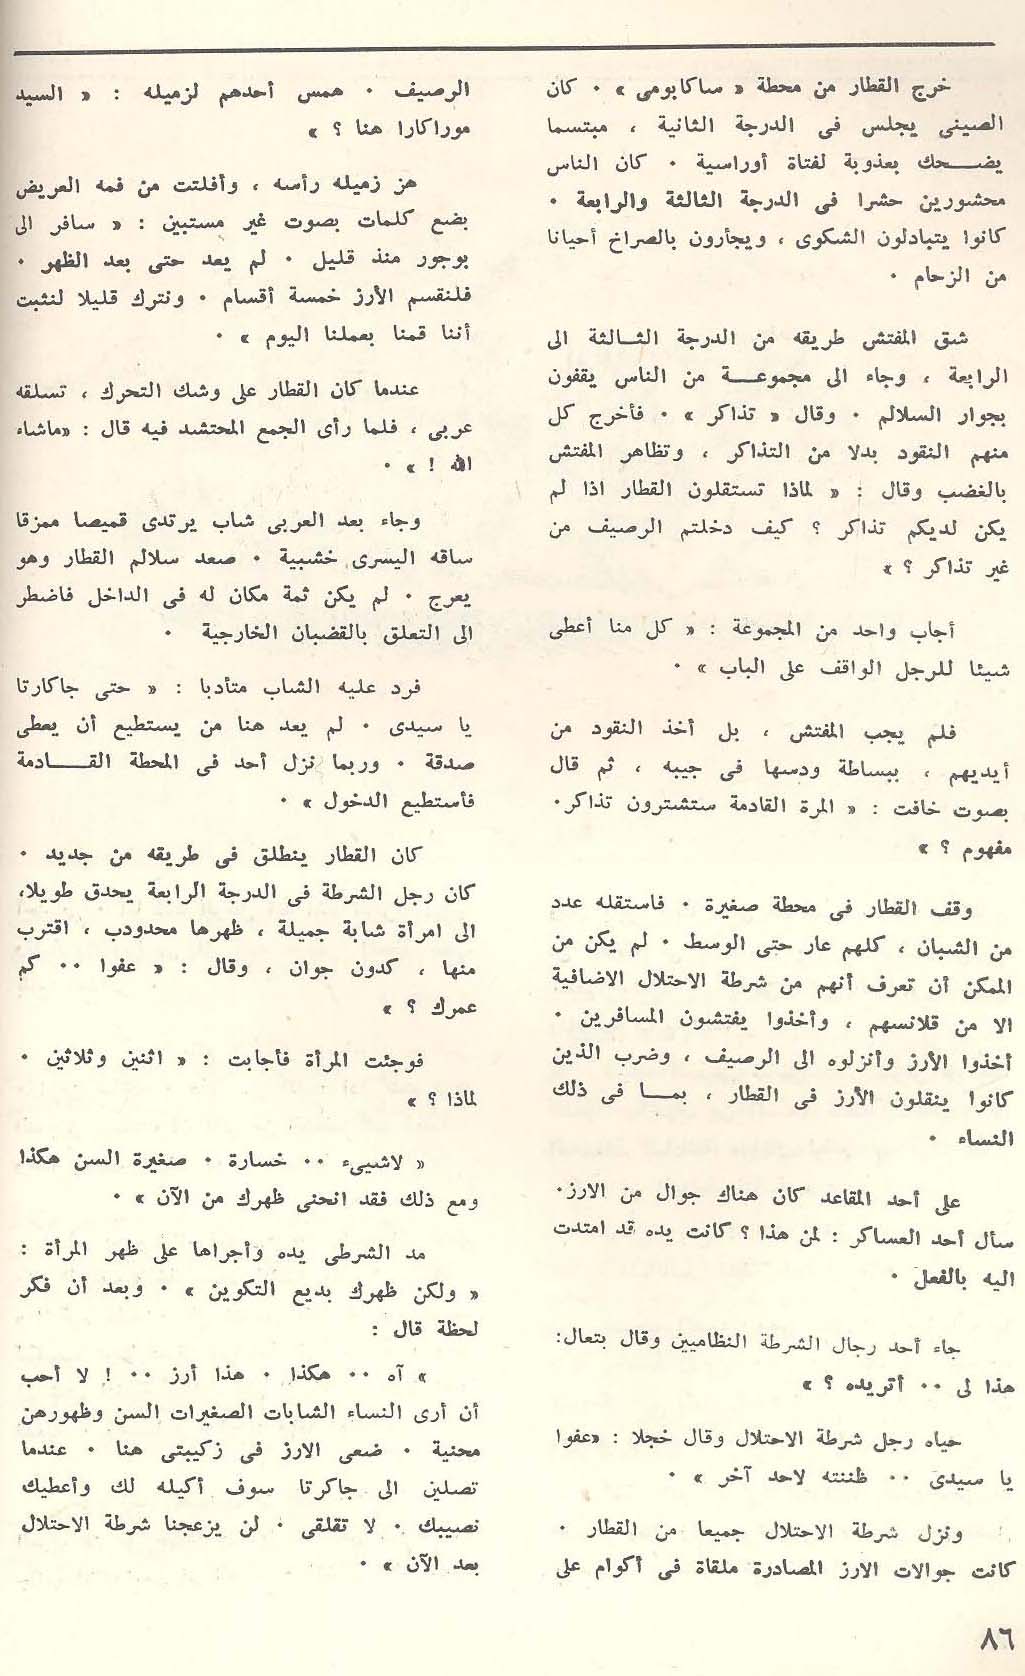 خرج القطار من محطة « ساكابومى » ٠ كان
الصينى يجلس فى الدرجة الثانية ، مبتسما
يضـــحك بعذوبة لفتاة أوراسية ٠ كان الناس
محشورين حشرا فى الدرجة الثالثة والرابعة ٠
كانوا يتبادلون الشكوى ، ويجأرون بالصراخ أحيانا
من الزحام ٠
شق المفتش طريقه من الدرجة الثـالثة الى
الرابعة ، وجاء الى مجموعـــة من الناس يقفون
بجوار السلالم ٠ وقال « تذاكر » ٠ فأخرج كل
منهم النقود بدلا من التذاكر ، وتظاهر المفتش
بالغضب وقال : « لماذا تستقلون القطار اذا لم
يكن لديكم تذاكر ؟ كيف دخلتم الرصيف من
غير تذاكر ؟ »
أجاب واحد من المجموعة : « كل منا أعطى
شيئا للرجل الواقف على الباب » ٠
فلم يجب المفتش ، بل أخذ النقود من
أيديهم ، ببساطة ودسها فى جيبه ، ثم قال
بصوت خافت : « المرة القادمة ستشترون تذاكر ٠
مفهوم ؟ »
وقف القطار فى محطة صغيرة ٠ فاستقله عدد
من الشبان ، كلهم عار حتى الوسط ٠ لم يكن من
الممكن أن تعرف أنهم من شرطة الاحتلال الاضافية
الا من قلانسهم ، وأخذوا يفتشون المسافرين ٠
أخذوا الأرز وأنزلوه الى الرصيف ، وضرب الذين
كانوا ينقلون الأرز فى القطار ، بمـــا فى ذلك
النساء ٠
على أحد المقاعد كان هناك جوال من الارز ٠
سأل أحد العساكر : لمن هذا ؟ كانت يده قد امتدت
اليه بالفعل ٠
جاء أحد رجال الشرطة النظاميين وقال بتعال:
هذا لى ٠٠ أتريده ؟ »
حياه رجل شرطة الاحتلال وقال خجلا : «عفوا
يا سيدى ٠٠ ظننته لاحد آخر » ٠
ونزل شرطة الاحتلال جميعا من القطار ٠
كانت جوالات الارز المصادرة ملقاة فى أكوام على
الرصيف ٠ همس أحدهم لزميله : « السيد
موراكارا هنا ؟ »
هز زميله رأسه ، وأفلتت من فمه العريض
بضع كلمات بصوت غير مستبين : « سافر الى
بوجور منذ قليل ٠ لم يعد حتى بعد الظهر ٠
فلنقسم الأرز خمسة أقسام ٠ ونترك قليلا لنثبت
أننا قمنا بعملنا اليوم » ٠
عندما كان القطار على وشك التحرك ، تسلقه
عربى ، فلما رأى الجمع المحتشد فيه قال : «ماشاء
الله ! » ٠
وجاء بعد العربى شاب يرتدى قميصا ممزقا
ساقه اليسرى خشبية ٠ صعد سلالم القطار وهو
يعرج ٠ لم يكن ثمة مكان له فى الداخل فاضطر
الى التعلق بالقضبان الخارجية ٠
فرد عليه الشاب متأدبا : « حتى جاكارتا
يا سيدى ٠ لم يعد هنا من يستطيع أن يعطى
صدقة ٠ وربما نزل أحد فى المحطة القـــادمة
فأستطيع الدخول » ٠
كان القطار ينطلق فى طريقه من جديد ٠
كان رجل الشرطة فى الدرجة الرابعة يحدق طويلا،
الى امرأة شابة جميلة ، ظهرها محدودب ، اقترب
منها ، كدون جوان ، وقال : « عفوا ٠٠ كم
عمرك ؟ »
فوجئت المرأة فأجابت : « اثنين وثلاثين ٠
لماذا ؟ »
« لاشيىء ٠٠ خسارة ٠ صغيرة السن هكذا
ومع ذلك فقد انحنى ظهرك من الآن » ٠
مد الشرطى يده وأجراها على ظهر المرأة :
« ولكن ظهرك بديع التكوين » ٠ وبعد أن فكر
لحظة قال :
» آه ٠٠ هكذا ٠ هذا أرز ٠٠ ! لا أحب
أن أرى النساء الشابات الصغيرات السن وظهورهن
محنية ٠ ضعى الارز فى زكيبتى هنا ٠ عندما
تصلين الى جاكرتا سوف أكيله لك وأعطيك
نصيبك ٠ لا تقلقى ٠ لن يزعجنا شرطة الاحتلال
بعد الآن » ٠
٨٦